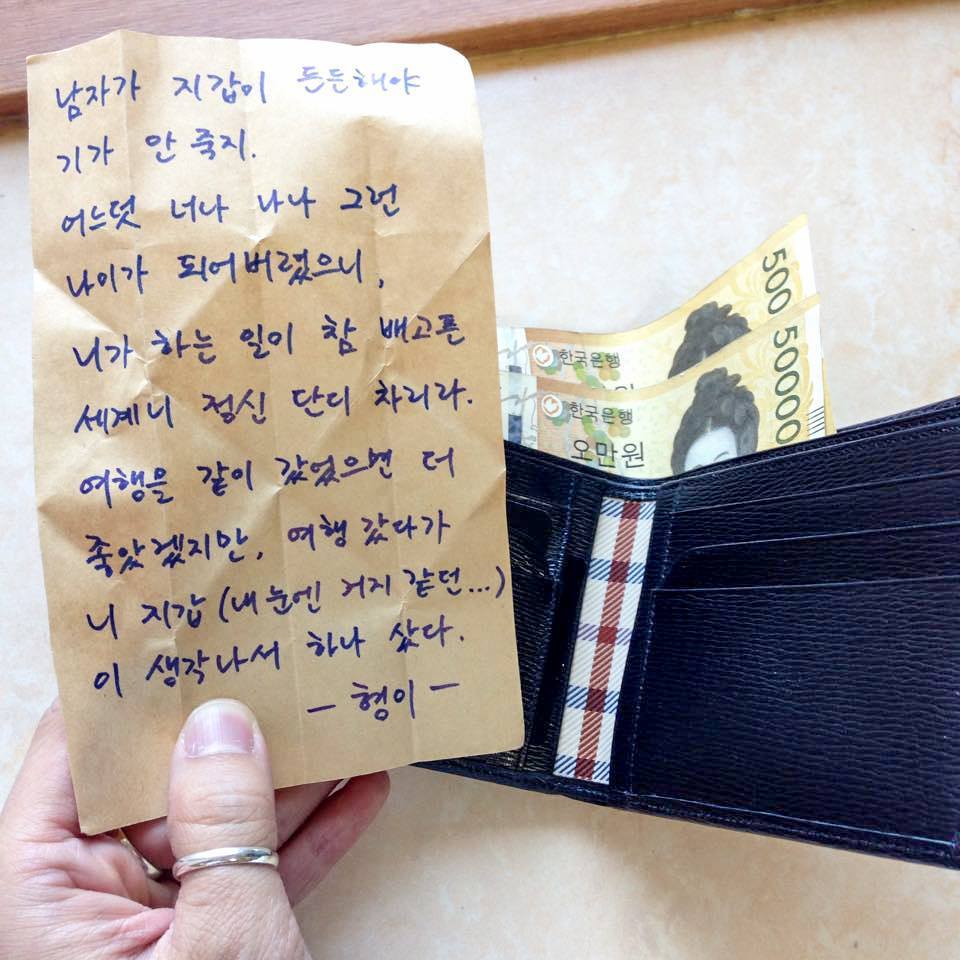 남자가 지갑이 든든해야
기가 안 죽지.
어느덧 너나 나나 그런
나이가 되어버렸으니,
니가 하는 일이 참 배고픈
세계니 정신 단디 차리라.
여행을 같이 갔었으면 더
좋았겠지만, 여행 갔다가
니 지갑 (내 눈엔 거지 같던...)
이 생각나서 하나 샀다.
- 형이 -
500
한국은행
50000
한국은행
오만원